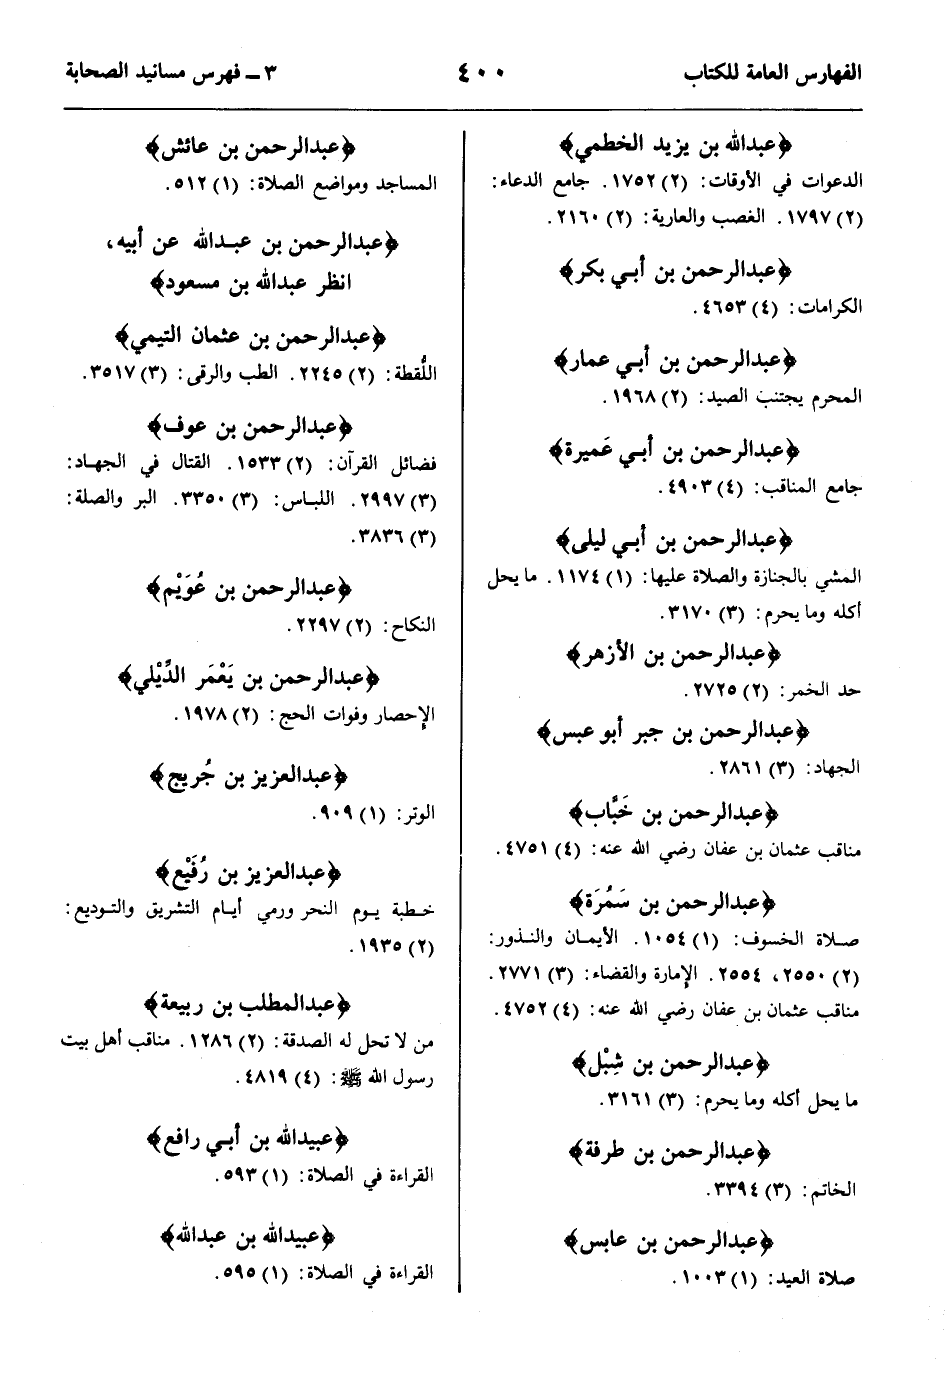 الفهارس العامة للكتاب ٤٠٠ ٣ ــ فهرس مسانيد الصحابة
﴿عبدالله بن يزيد الخطمي﴾
الدعوات في الأوقات: (٢) ١٧٥٢. جامع الدعاء:
(٢) ١٧٩٧. الغصب والعارية: (٢) ٢١٦٠.
﴿عبدالرحمن بن أبي بكر﴾
الكرامات: (٤) ٤٦٥٣.
﴿عبدالرحمن بن أبي عمار﴾
المحرم يجتنب الصيد: (٢) ١٩٦٨.
﴿عبدالرحمن بن أبي عَميرة﴾
جامع المناقب: (٤) ٤٩٠٣.
﴿عبدالرحمن بن أبي ليلى﴾
المشي بالجنازة والصلاة عليها: (١) ١١٧٤. ما يحل
أكله وما يحرم: (٣) ٣١٧٠.
﴿عبدالرحمن بن الأزهر﴾
حد الخمر: (٢) ٢٧٢٥.
﴿عبدالرحمن بن جبر أبو عبس﴾
الجهاد: (٣) ٢٨٦١.
﴿عبدالرحمن بن خَبَّاب﴾
مناقب عثمان بن عفان رضي الله عنه: (٤) ٤٧٥١.
﴿عبدالرحمن بن سَمُرَة﴾
صلاة الخسوف: (١) ١٠٥٤. الأيمان والنذور:
(٢) ٢٥٥٠، ٢٥٥٤. الإمارة والقضاء: (٣) ٢٧٧١.
مناقب عثمان بن عفان رضي الله عنه: (٤) ٤٧٥٢.
﴿عبدالرحمن بن شِبْل﴾
ما يحل أكله وما يحرم: (٣) ٣١٦١.
﴿عبدالرحمن بن طرفة﴾
الخاتم: (٣) ٣٣٩٤.
﴿عبدالرحمن بن عابس﴾
صلاة العيد: (١) ١٠٠٣.
﴿عبدالرحمن بن عائش﴾
المساجد ومواضع الصلاة: (١) ٥١٢.
﴿عبدالرحمن بن عبدالله عن أبيه،
انظر عبدالله بن مسعود﴾
﴿عبدالرحمن بن عثمان التيمي﴾
اللُّقطة: (٢) ٢٢٤٥. الطب والرقى: (٣) ٣٥١٧.
﴿عبدالرحمن بن عوف﴾
فضائل القرآن: (٢) ١٥٣٣. القتال في الجهاد:
(٣) ٢٩٩٧. اللباس: (٣) ٣٣٥٠. البر والصلة:
(٣) ٣٨٣٦.
﴿عبدالرحمن بن عُوَيْم﴾
النكاح: (٢) ٢٢٩٧.
﴿عبدالرحمن بن يَعْمَر الدِّيْلي﴾
الإحصار وفوات الحج: (٢) ١٩٧٨.
﴿عبدالعزيز بن جُريج﴾
الوتر: (١) ٩٠٩.
﴿عبدالعزيز بن رُفَيْع﴾
خطبة يوم النحر ورمي أيام التشريق والتوديع:
(٢) ١٩٣٥.
﴿عبدالمطلب بن ربيعة﴾
من لا تحل له الصدقة: (٢) ١٢٨٦. مناقب أهل بيت
رسول الله ﷺ: (٤) ٤٨١٩.
﴿عبيدالله بن أبي رافع﴾
القراءة في الصلاة: (١) ٥٩٣.
﴿عبيدالله بن عبدالله﴾
القراءة في الصلاة: (١) ٥٩٥.